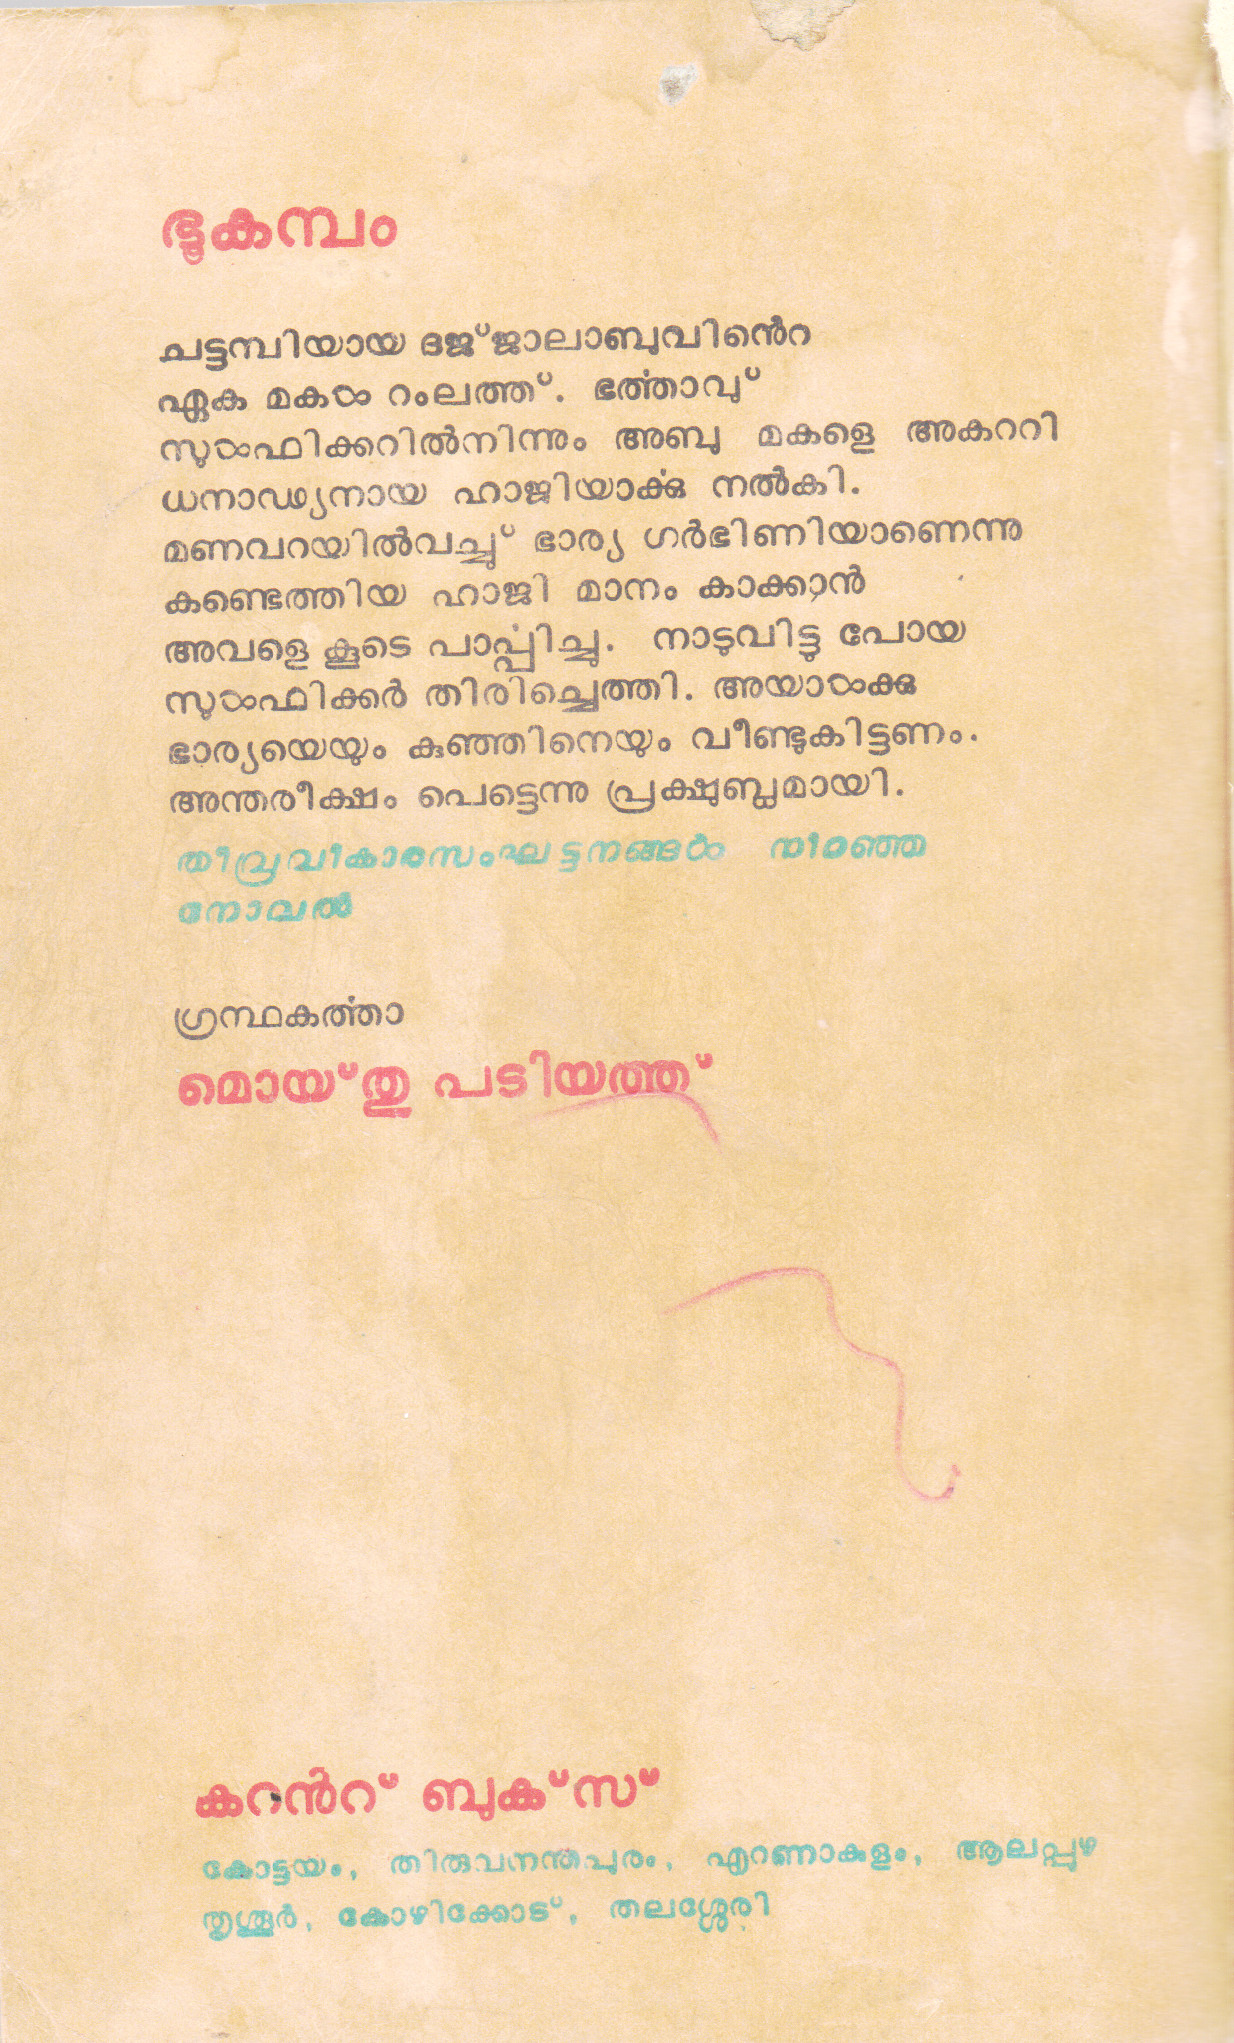 ഭൂകമ്പം
ചട്ടമ്പിയായ ദജ്ജാലാബുവിൻെറ
ഏക മകൾ റംലത്ത്. ഭൎത്താവു്
സുൾഫിക്കറിൽനിന്നും അബു മകളെ അകററി
ധനാഢ്യനായ ഹാജിയാൎക്കു നൽകി.
മണവറയിൽവച്ചു് ഭാര്യ ഗർഭിണിയാണെന്നു
കണ്ടെത്തിയ ഹാജി മാനം കാക്കാൻ
അവളെ കൂടെ പാൎപ്പിച്ചു. നാടുവിട്ടു പോയ
സുൾഫിക്കർ തിരിച്ചെത്തി. അയാൾക്കു
ഭാര്യയെയും കുഞ്ഞിനെയും വീണ്ടുകിട്ടണം.
അന്തരീക്ഷം പെട്ടെന്നു പ്രക്ഷുബ്ധമായി.
തീവ്രവികാരസംഘട്ടനങ്ങൾ നിറഞ്ഞ
നോവൽ
ഗ്രന്ഥകൎത്താ
മൊയ്തു പടിയത്ത്
കറൻറ് ബുക്സ്
കോട്ടയം, തിരുവനന്തപുരം, എറണാകുളം, ആലപ്പുഴ
തൃശ്ശൂർ, കോഴിക്കോട്, തലശ്ശേരി